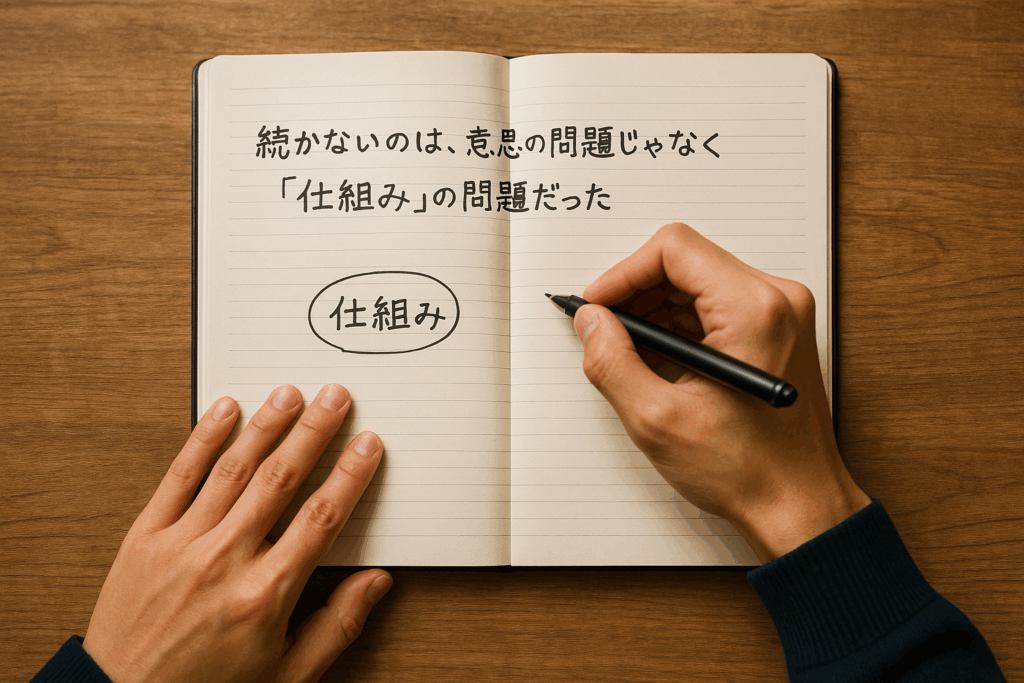 続かないのは、意思の問題じゃなく
「仕組み」の問題だった
仕組み